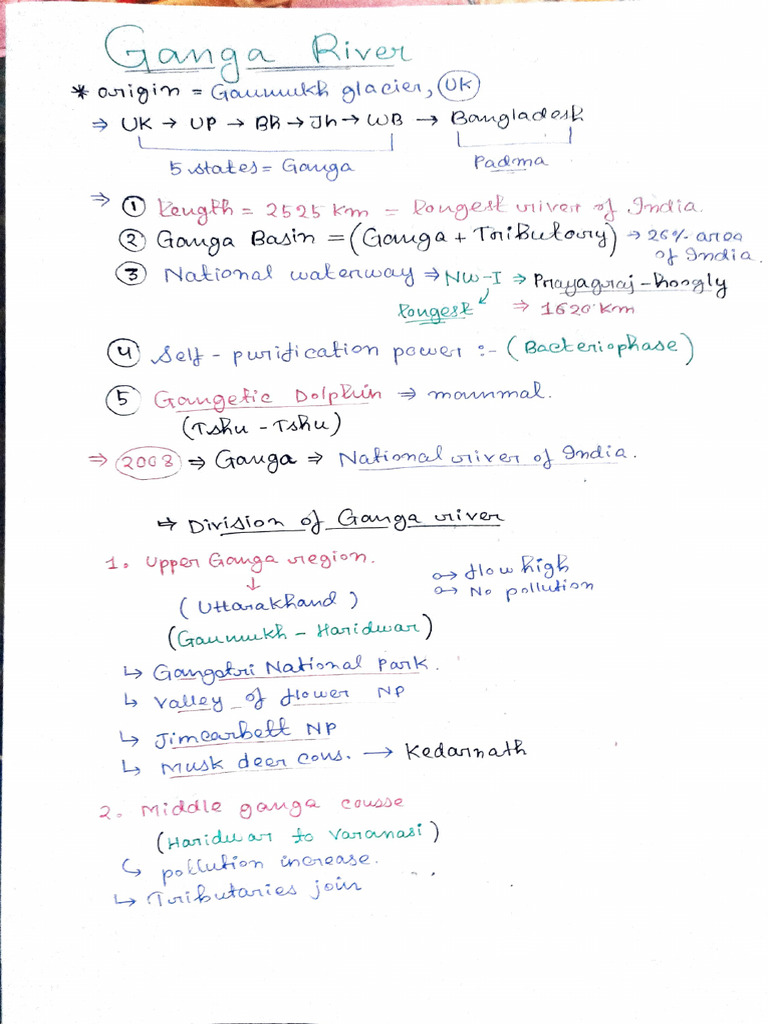 Ganga River
* origin = Gaumukh glacier, UK
⇒ UK → UP → Bh → Jh → WB → Bangladesh
5 states = Ganga
Padma
⇒ ① Length = 2525 Km = longest river of India.
② Ganga Basin = (Ganga + Tributory) → 26% area of India.
③ National waterway ⇒ NW-I ⇒ Prayagraj - Hoogly
longest ⇒ 1620 Km
④ Self - purification power :- (Bacteriophase)
⑤ Gangetic Dolphin ⇒ mammal.
(Tshu - Tshu)
⇒ 2008 ⇒ Ganga ⇒ National river of India.
⇒ Division of Ganga river
1. Upper Ganga region.
↓
(Uttarakhand)
(Gaumukh - Haridwar)
→ flow high
→ No pollution
↳ Gangotri National Park.
↳ Valley of flower NP
↳ Jimcarbett NP
↳ Musk deer cons. → Kedarnath
2. Middle ganga cousse
(Haridwar to Varanasi)
↳ pollution increase.
↳ Tributaries join